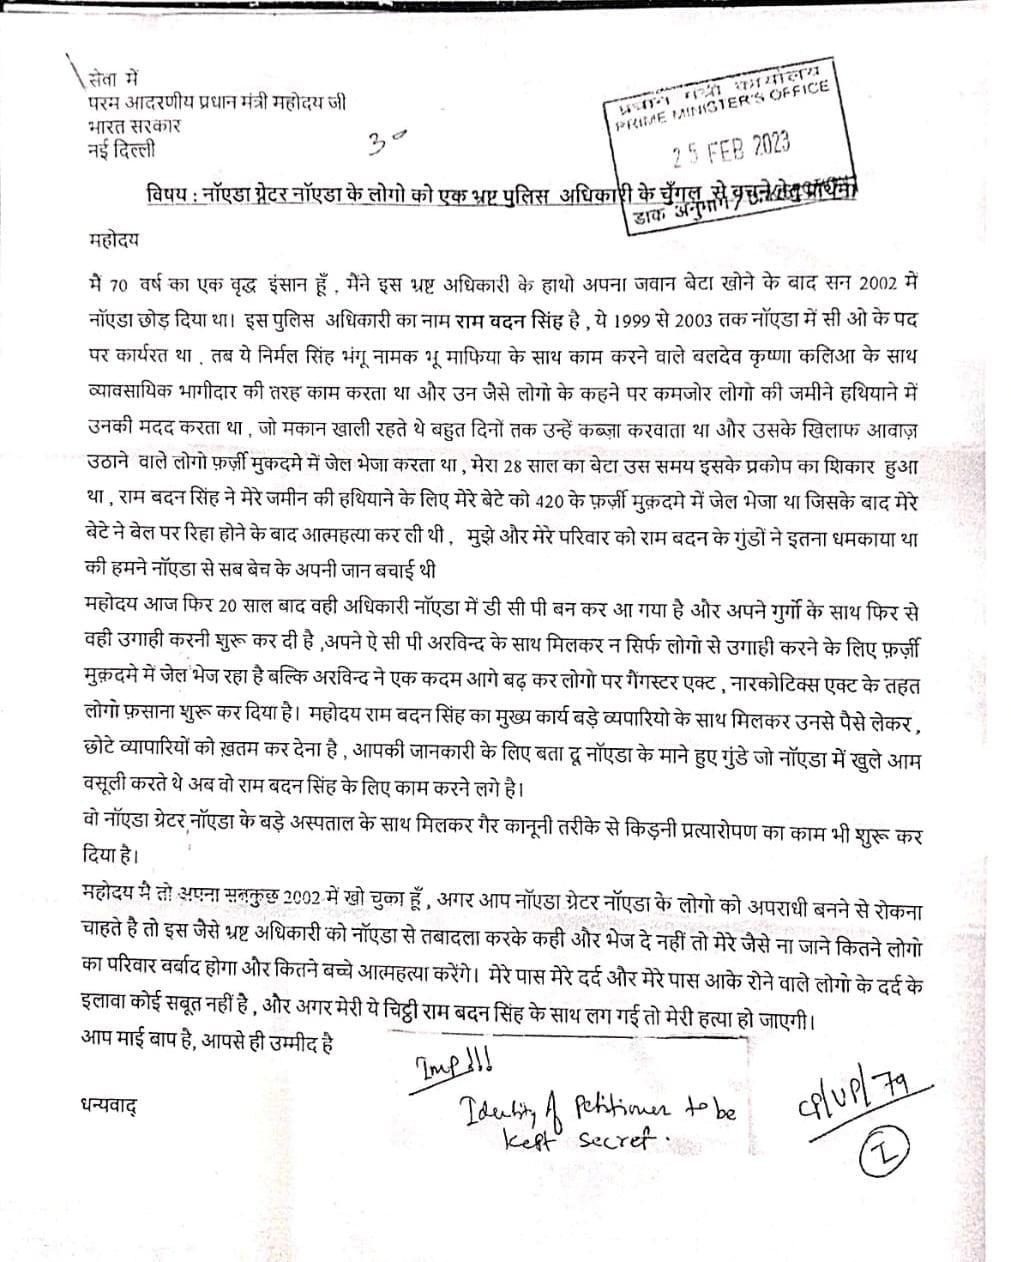 सेवा में
परम आदरणीय प्रधान मंत्री महोदय जी
भारत सरकार
नई दिल्ली
30
प्रधान मंत्री कार्यालय
PRIME MINISTER'S OFFICE
25 FEB 2023
डाक अनुभाग
विषय : नॉएडा ग्रेटर नॉएडा के लोगो को एक भ्रष्ट पुलिस अधिकारी के चुँगल से बचने हेतु प्रार्थना
महोदय
मै 70 वर्ष का एक वृद्ध इंसान हूँ , मैंने इस भ्रष्ट अधिकारी के हाथो अपना जवान बेटा खोने के बाद सन 2002 में
नॉएडा छोड़ दिया था। इस पुलिस अधिकारी का नाम राम वदन सिंह है , ये 1999 से 2003 तक नॉएडा में सी ओ के पद
पर कार्यरत था , तब ये निर्मल सिंह भंगू नामक भू माफिया के साथ काम करने वाले बलदेव कृष्णा कलिआ के साथ
व्यावसायिक भागीदार की तरह काम करता था और उन जैसे लोगो के कहने पर कमजोर लोगो की जमीने हथियाने में
उनकी मदद करता था , जो मकान खाली रहते थे बहुत दिनों तक उन्हें कब्ज़ा करवाता था और उसके खिलाफ आवाज़
उठाने वाले लोगो फ़र्ज़ी मुकदमे में जेल भेजा करता था , मेरा 28 साल का बेटा उस समय इसके प्रकोप का शिकार हुआ
था , राम बदन सिंह ने मेरे जमीन की हथियाने के लिए मेरे बेटे को 420 के फ़र्ज़ी मुक़दमे में जेल भेजा था जिसके बाद मेरे
बेटे ने बेल पर रिहा होने के बाद आत्महत्या कर ली थी , मुझे और मेरे परिवार को राम बदन के गुंडों ने इतना धमकाया था
की हमने नॉएडा से सब बेच के अपनी जान बचाई थी
महोदय आज फिर 20 साल बाद वही अधिकारी नॉएडा में डी सी पी बन कर आ गया है और अपने गुर्गो के साथ फिर से
वही उगाही करनी शुरू कर दी है ,अपने ऐ सी पी अरविन्द के साथ मिलकर न सिर्फ लोगो से उगाही करने के लिए फ़र्ज़ी
मुक़दमे में जेल भेज रहा है बल्कि अरविन्द ने एक कदम आगे बढ़ कर लोगो पर गैंगस्टर एक्ट , नारकोटिक्स एक्ट के तहत
लोगो फ़साना शुरू कर दिया है। महोदय राम बदन सिंह का मुख्य कार्य बड़े व्यपारियो के साथ मिलकर उनसे पैसे लेकर ,
छोटे व्यापारियों को ख़तम कर देना है , आपकी जानकारी के लिए बता दू नॉएडा के माने हुए गुंडे जो नॉएडा में खुले आम
वसूली करते थे अब वो राम बदन सिंह के लिए काम करने लगे है।
वो नॉएडा ग्रेटर नॉएडा के बड़े अस्पताल के साथ मिलकर गैर कानूनी तरीके से किड़नी प्रत्यारोपण का काम भी शुरू कर
दिया है।
महोदय मै तो अपना सबकुछ 2002 में खो चुका हूँ , अगर आप नॉएडा ग्रेटर नॉएडा के लोगो को अपराधी बनने से रोकना
चाहते है तो इस जैसे भ्रष्ट अधिकारी को नॉएडा से तबादला करके कही और भेज दे नहीं तो मेरे जैसे ना जाने कितने लोगो
का परिवार वर्बाद होगा और कितने बच्चे आत्महत्या करेंगे। मेरे पास मेरे दर्द और मेरे पास आके रोने वाले लोगो के दर्द के
इलावा कोई सबूत नहीं है , और अगर मेरी ये चिट्ठी राम बदन सिंह के साथ लग गई तो मेरी हत्या हो जाएगी।
आप माई बाप है, आपसे ही उम्मीद है
धन्यवाद्
Imp!!!
Identity of Petitioner to be
kept secret.
CP/UP/79
I